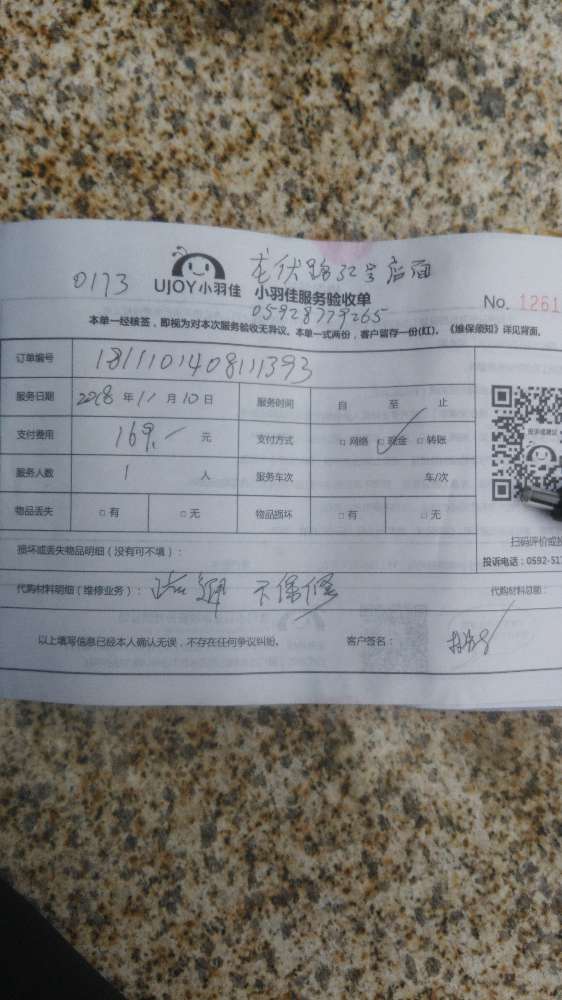 0173 UJOY小羽佳 龙伏路32号店面
小羽佳服务验收单
05928779265
No. 1261
本单一经核签，即视为对本次服务验收无异议。本单一式两份，客户留存一份(红)。《维保须知》详见背面。
订单编号 1811101408111393
服务日期 2018 年 11 月 10 日 服务时间 自 至 止
支付费用 169 元 支付方式 □ 网络 ☑ 现金 □ 转账
服务人数 1 人 服务车次 车/次
物品丢失 □ 有 □ 无 物品损坏 □ 有 □ 无
损坏或丢失物品明细（没有可不填）：
扫码评价或投
投诉电话：0592-51
代购材料明细（维修业务）： 疏通 不保修 代购材料总额：
以上填写信息已经本人确认无误，不存在任何争议纠纷。 客户签名：